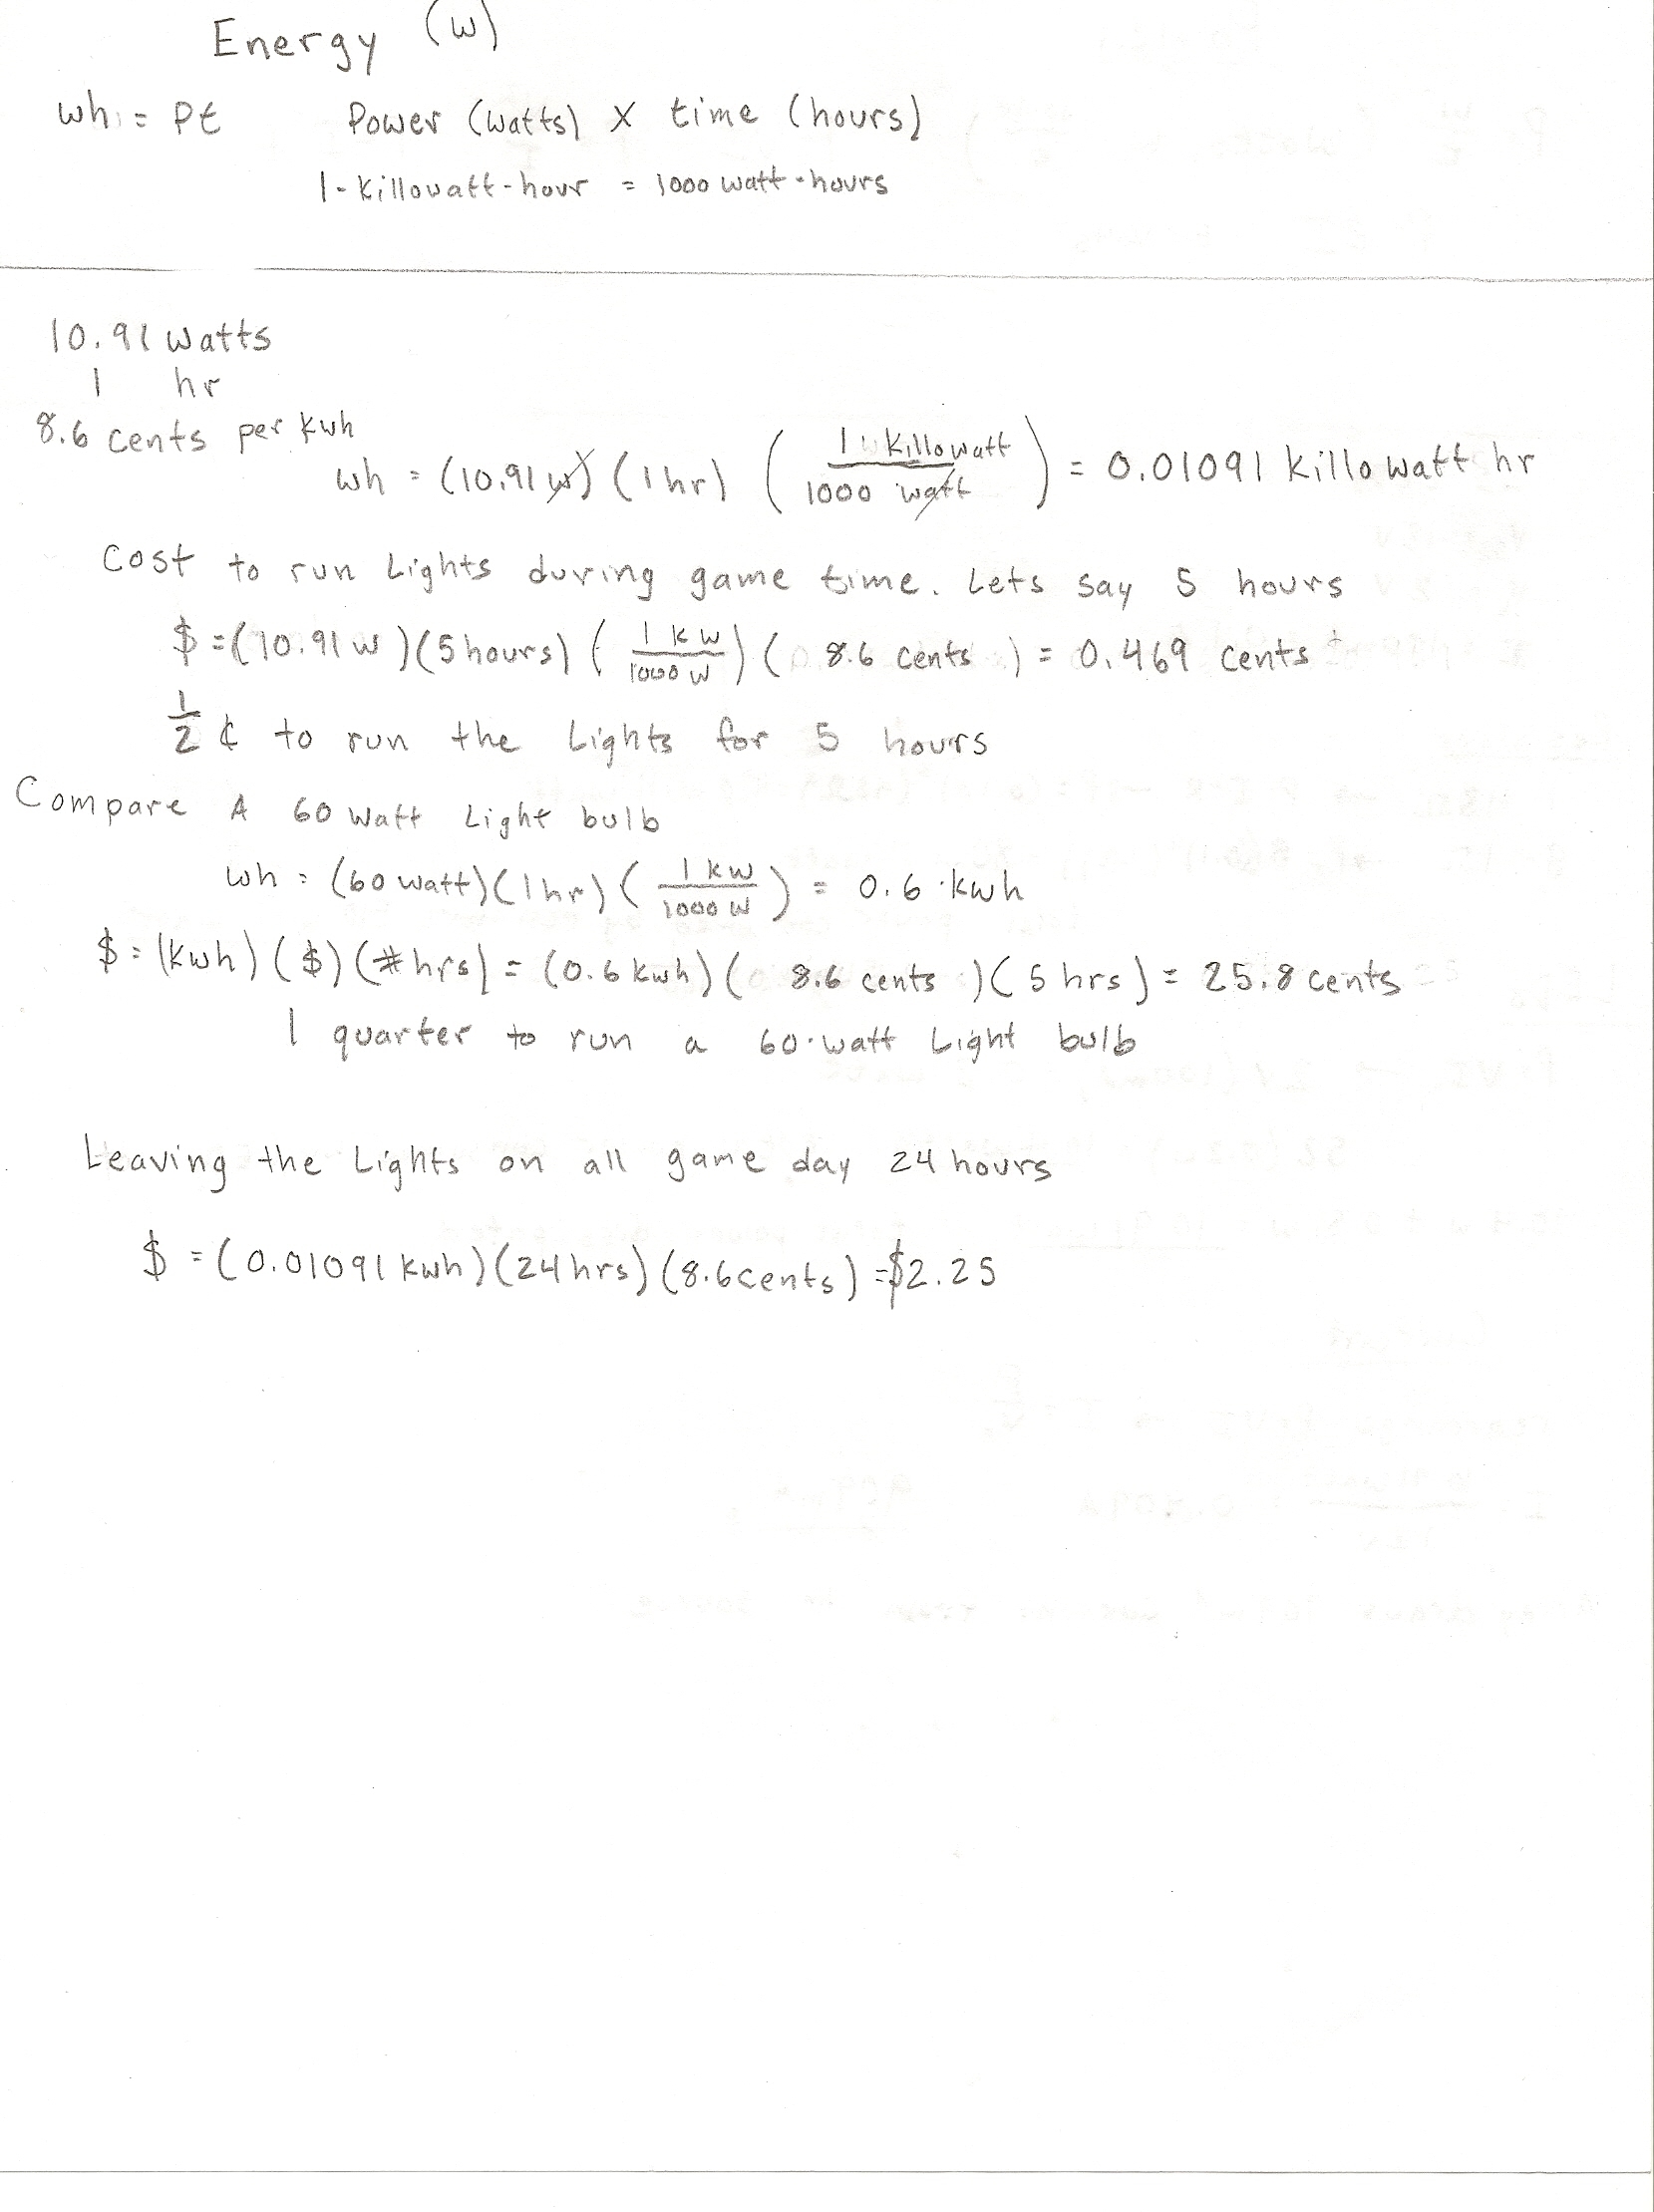 Energy (w)
wh = Pt Power (watts) x time (hours)
1-killowatt-hour = 1000 watt-hours
10.91 watts
1 hr
8.6 cents per kwh
wh = (10.91 w) (1 hr) ( 1 killowatt / 1000 watt ) = 0.01091 killowatt hr
Cost to run Lights during game time. Lets say 5 hours
$ = (10.91 w) (5 hours) ( 1 kw / 1000 w ) ( 8.6 cents ) = 0.469 cents
1/2 ¢ to run the Lights for 5 hours
Compare A 60 watt Light bulb
wh = (60 watt) (1 hr) ( 1 kw / 1000 w ) = 0.6 kwh
$ = (kwh) ($) (# hrs) = (0.6 kwh) ( 8.6 cents ) (5 hrs) = 25.8 cents
1 quarter to run a 60-watt Light bulb
Leaving the Lights on all game day 24 hours
$ = (0.01091 kwh) (24 hrs) (8.6 cents) = $2.25